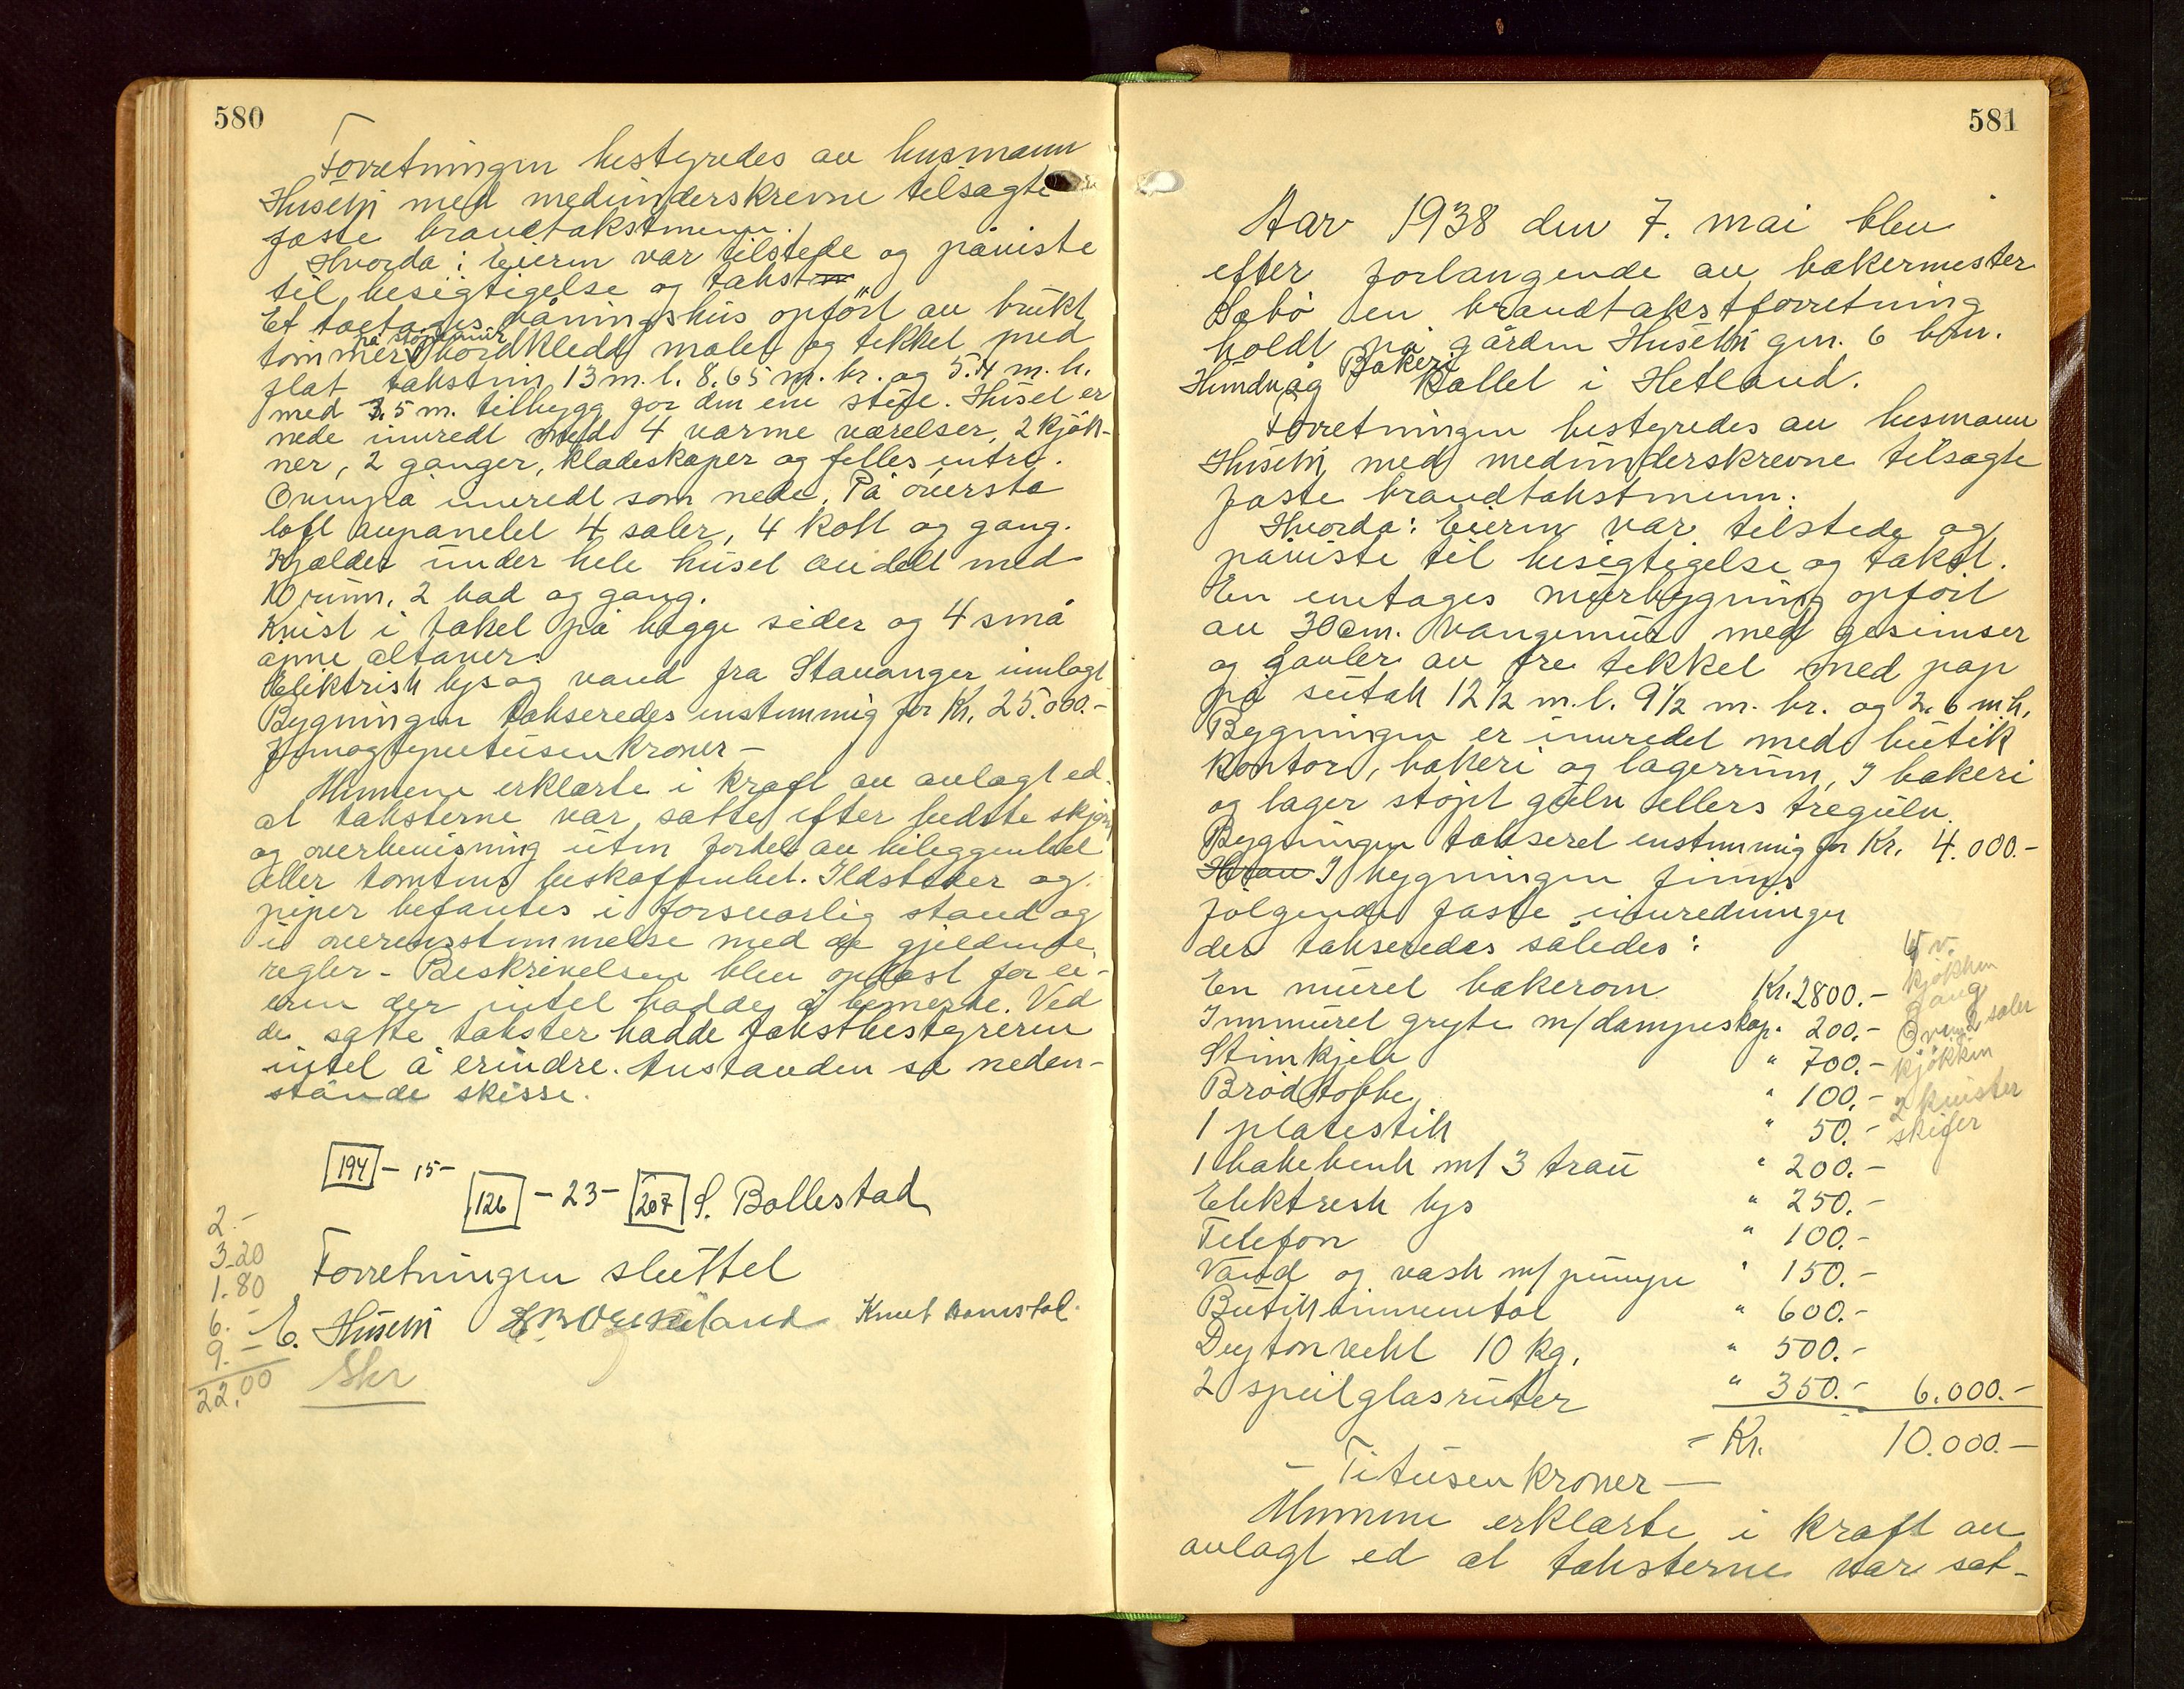 580
Forretningen bestyredes av husmann
Husebø med medunderskrevne tilsagte
faste brandtakstmenn.
Hvorda: Eieren var tilstede og påviste
til besigtigelse og takst
Et toetages våningshus opfört av brukt
på stöpt mur
tömmer bordkledd malet og tekket med
flat takstein 13 m. l. 8.65 m. br. og 5.4 m. h.
med 3.5 m. tilbygg for den ene side. Huset er
nede innredt med 4 varme værelser, 2 kjök-
ner, 2 ganger, kladeskaper og felles entre.
Ovenpå innredt som nede. På översta
loft avpanelet 4 saler, 4 kott og gang.
Kjælder under hele huset avdelt med
10 rum, 2 bad og gang.
Kvist i taket på begge sider og 4 små
åpne altaner.
Elektrisk lys og vand fra Stavanger innlagt
Bygningen takseredes enstemmig for Kr. 25.000.-
femogtyvetusen kroner -
Mennene erklærte i kraft av avlagt ed
at taksterne var satte efter bedste skjön
og overbevisning uten fordel av beliggenhet
eller tomtens beskaffenhet. Ildsteder og
piper befantes i forsvarlig stand og
i overensstemmelse med de gjeldende
regler - Beskrivelsen blev oplæst for ei-
eren der intet hadde å bemerke. Ved
de satte takster hadde takstbestyreren
intet å erindre. Avstanden se neden-
stånde skisse.
194 - 15 -
126 - 23 - 207 S. Bollestad
2.-
3.20
1.80
6.-
9.-
22.00
Forretningen sluttet
E. Husebø Knut
Skr
581
Aar 1938 den 7. mai blev
efter forlangende av bakermester
Sæbö en brandtakstforretning
holdt på gården Husebø gnr. 6 bnr.
Hundvåg Bakeri kallet i Hetland.
Forretningen bestyredes av husmann
Husebø, med medunderskrevne tilsagte
faste brandtakstmenn.
Hvorda: Eieren var tilstede og
påviste til besigtigelse og takst.
En enetages murbygning opfört
av 30 cm. vangemur med gesimser
og gavler av tre tekket med pap
på sutak 12 1/2 m. l. 9 1/2 m. br. og 2.6 m h.
Bygningen er innredet med butik
kontor, bakeri og lagerrum, I bakeri
og lager stöpt gulv ellers tregulv.
Bygningen takseret enstemmig for Kr. 4.000.-
I bygningen finnes
fölgende faste innredninger
der takseredes således:
En muret bakerovn Kr. 2800.-
Innmuret gryte m/ dampeskap " 200.-
Stimkjele " 700.-
Brödstobbe " 100.-
1 platestik " 50.-
1 bakebenk m/ 3 trau " 200.-
Elektresk lys " 250.-
Telefon " 100.-
Vand og vask m/ pumpe " 150.-
Butikkinnventar " 600.-
Deytonvekt 10 kg. " 500.-
2 speilglasruter " 350.- 6.000.-
- Kr. 10.000.-
4 v.
kjökken
gang
Ovenp 2 saler
kjökken
2 kvister
skifer
- Titusen kroner -
Mennene erklærte i kraft av
avlagt ed at taksterne var sat-